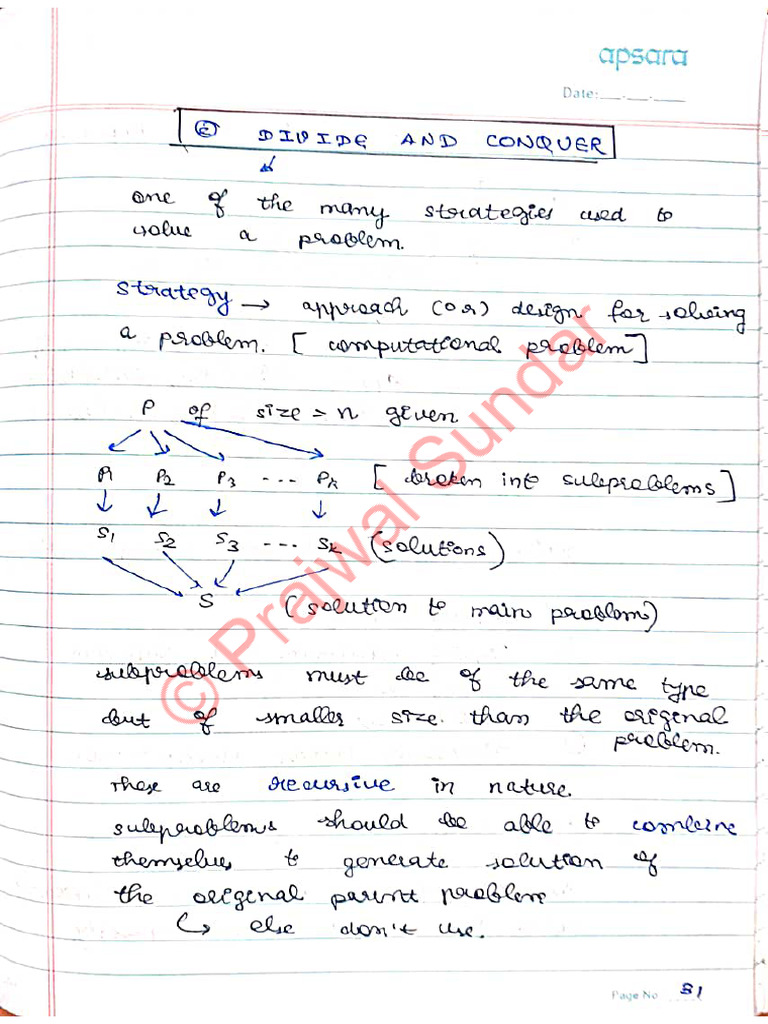 apsara
Date:___.___.____
② DIVIDE AND CONQUER
one of the many strategies used to
solve a problem.
strategy → approach (or) design for solving
a problem. [computational problem]
P of size = n given
P1 P2 P3 --- Pk [broken into subproblems]
S1 S2 S3 --- Sk (solutions)
S (solution to main problem)
subproblems must be of the same type
but of smaller size than the original
problem.
These are recursive in nature.
subproblems should be able to combine
themselves to generate solution of
the original parent problem
↳ else don't use.
© Prajwal Sundar
Page No 31